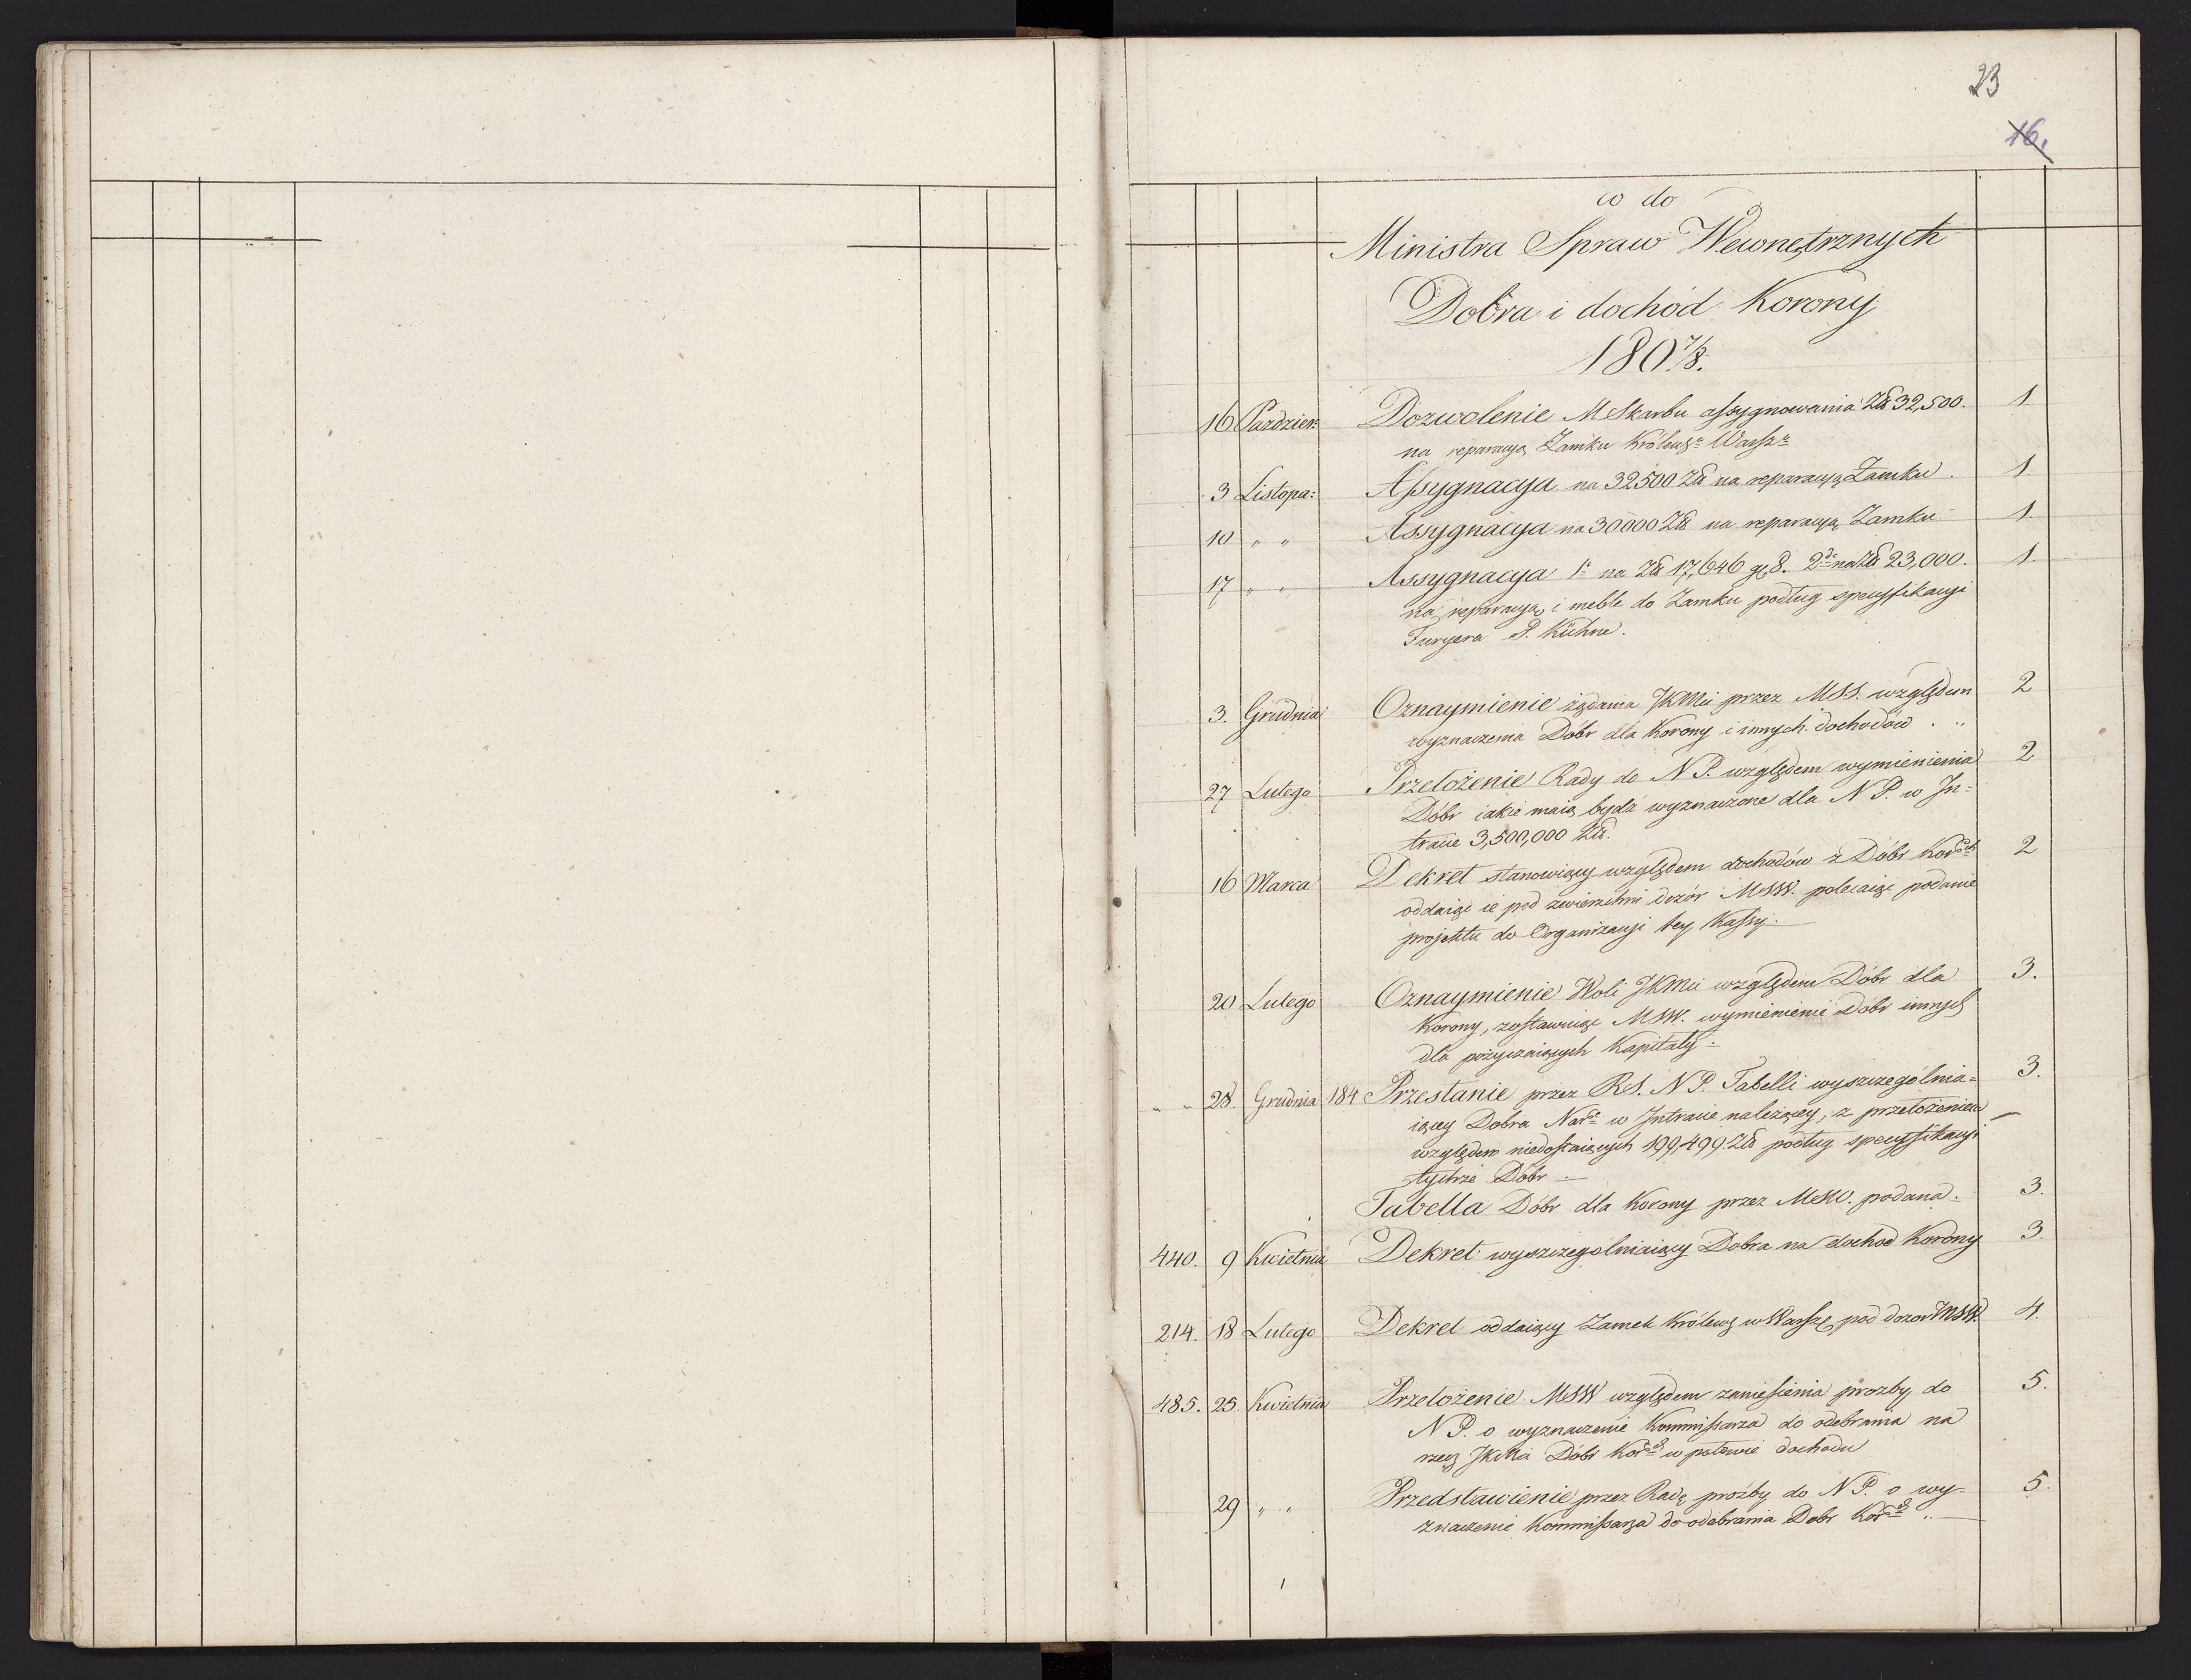 23
16.
co do
Ministra Spraw Wewnętrznych
Dobra i dochód Korony
180 7/8.
16 Pazdzier: Dozwolenie M Skarbu assygnowania Zł 32,500. 1.
na reparacyą Zamku Królewsº Warszº
3 Listopa: Assygnacya na 32500 Zł na reparacyą Zamku. 1.
10 " " Assygnacya na 30000 Zł na reparacyą Zamku 1.
17 " " Assygnacya 1º na Zł 17,646 g 8. 2do na Zł 23,000. 1.
na reparacyą i meble do Zamku podług specyfikacyi
Furyera P. Kühne.
3. Grudnia Oznaymienie żądania JKMci przez MSS. względem 2
wyznaczenia Dóbr dla Korony i innych dochodów . "
27 Lutego Przełożenie Rady do N P. względem wymienienia 2
Dóbr iakie maią bydź wyznaczone dla N P. w In=
tracie 3,500,000 Zł.
16 Marca Dekret stanowiący względem dochodów z Dóbr Korch 2
oddaiąc ie pod zwierzchni dozór MSW. polecaiąc podanie
projektu do Organizacyi tey Kassy.
20 Lutego Oznaymienie Woli JKMci względem Dóbr dla 3.
Korony, zostawuiąc MSW. wymienienie Dóbr innych
dla pożyczaiących Kapitały.
" " 28. Grudnia 184 Przesłanie przez RS. N P. Tabelli wyszczególnia= 3.
iącey Dobra Narº w Intracie należącey, z przełożeniem
względem niedostaiących 199,499. Zł podług specyfikacyi
tychże Dóbr
Tabella Dóbr dla Korony przez MSW. podana. 3.
440. 9 Kwietnia Dekret wyszczególniaiący Dobra na dochod Korony 3
214. 18 Lutego Dekret oddaiący Zamek Królews w Warsze pod dozor MSW. 4.
485. 25. Kwietnia Przełożenie MSW względem zaniesienia prozby do 5.
N P. o wyznaczenie Kommissarza do odebrania na
rzecz JKMci Dóbr Korch w połowie dochodu
29 " " Przedstawienie przez Radę prozby do N P. o wy= 5.
znaczenie Kommissarza do odebrania Dobr Korch "